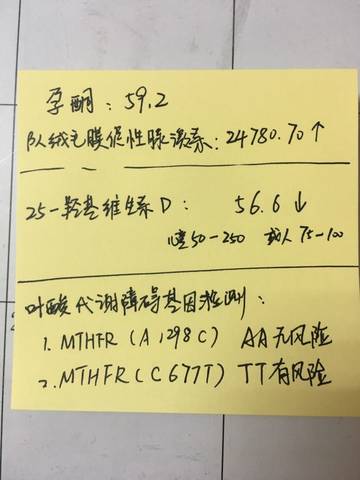 孕酮：59.2
β人绒毛膜促性腺激素：24780.70↑
25-羟基维生素D： 56.6↓
儿童50-250 成人75-100
叶酸代谢障碍基因检测：
1. MTHFR（A1298C） AA无风险
2. MTHFR（C677T） TT有风险